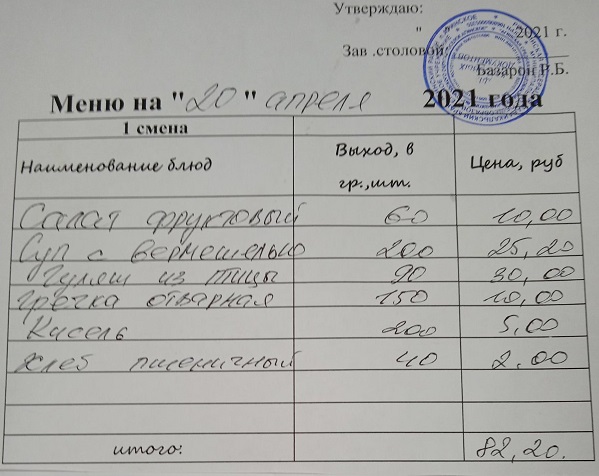 Утверждаю:
" 2021 г.
Зав .столовой:
Базарон Р.Б.
Меню на "20" апреля 2021 года
1 смена
Наименование блюд Выход, в гр.,шт. Цена, руб
Салат фруктовый 60 10,00
Суп с вермешелью 200 25,20
Гуляш из птицы 90 30,00
гречка отварная 150 10,00
Кисель 200 5,00
Хлеб пшеничный 40 2,00
итого: 82,20.